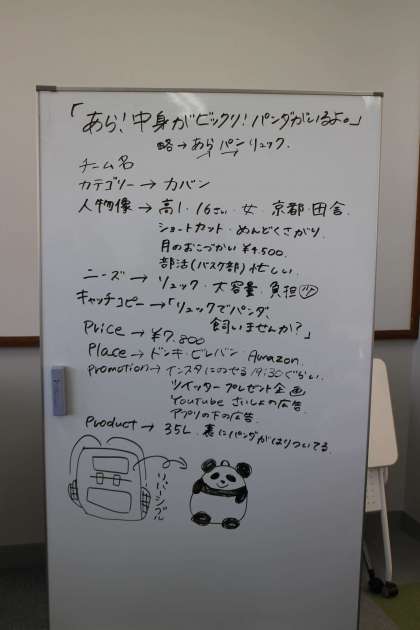 「あら！中身がビックリ！パンダがいるよ。」
略→あらパンリュック.
チーム名
カテゴリー→カバン
人物像→高1・16さい・女・京都・田舎
ショートカット・めんどくさがり.
月のおこづかい ¥4.500
部活(バスケ部)忙しい.
ニーズ→リュック・大容量・負担少
キャッチコピー→「リュックでパンダ、
飼いませんか？」
Price→¥7.800
Place→ドンキ・ビレバン・Amazon.
promotion→インスタにのせる 19:30ぐらい.
ツイッター プレゼント企画
YouTube さいしょの広告.
アプリの下の広告.
Product→35L. 裏にパンダがはりついてる.
リバーシブル